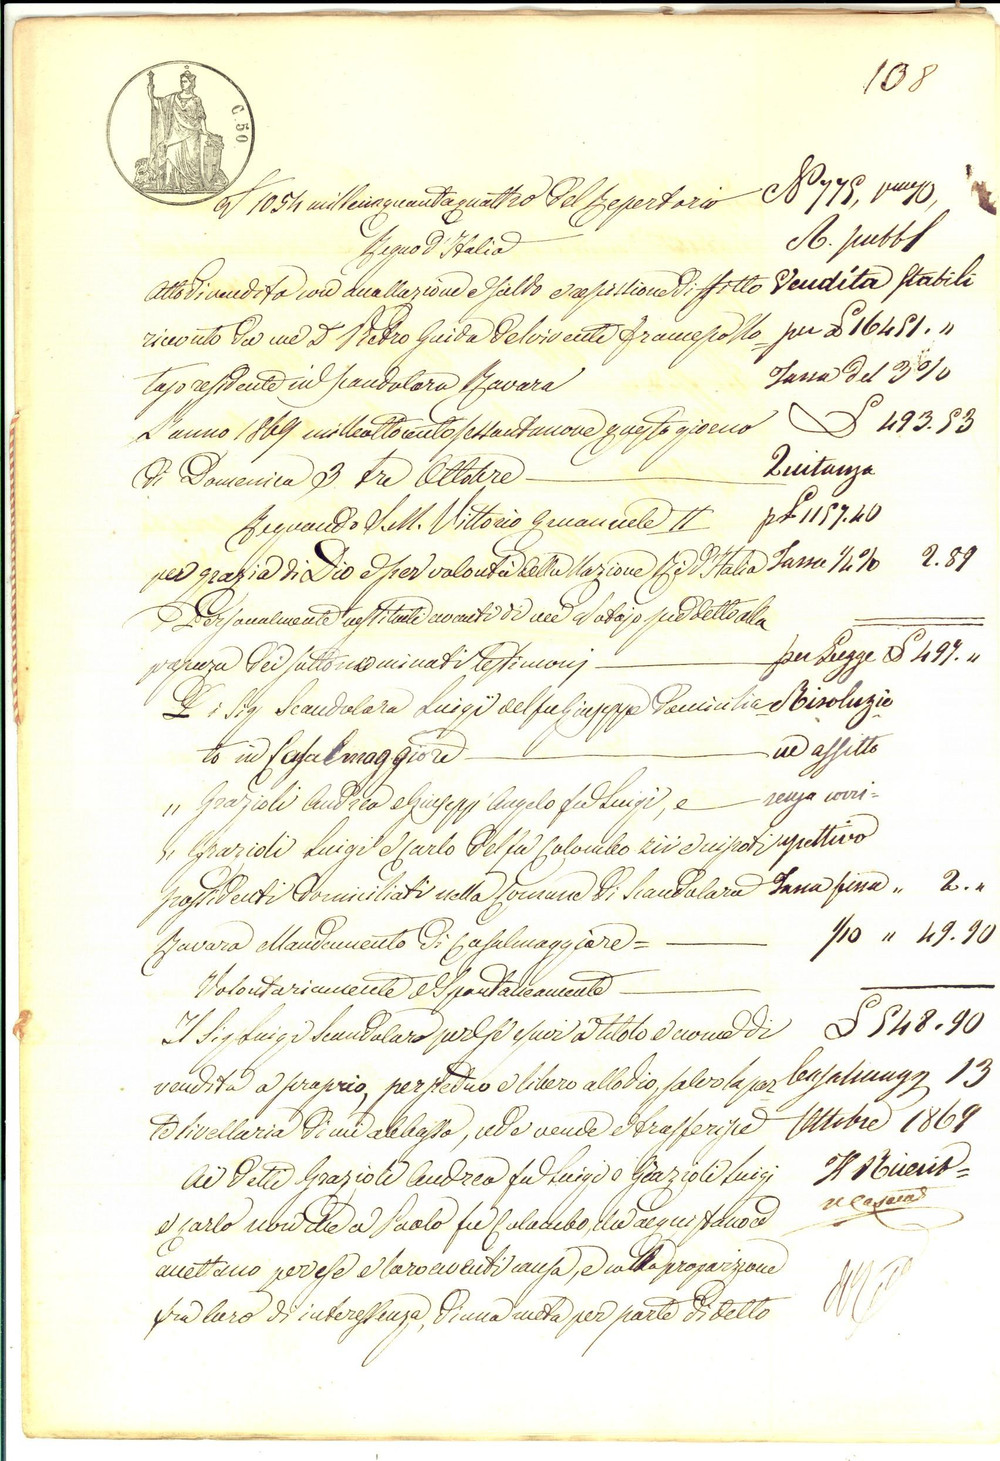 138
C. 50
N 1054 millecinquantaquattro del Repertorio
Regno d'Italia
Atto di vendita con e saldo e di fitto
ricevuto da me D.r Pietro Guida del vivente
tajo residente in Scandolara Ravara
L'anno 1869 milleottocentosessantanove questo giorno
di Domenica 3 tre Ottobre
Regnando S. M. Vittorio Emanuele II
per grazia di Dio e per volontà della Nazione Re d'Italia
Personalmente costituiti avanti di me Notajo suddetto alla
presenza dei sottonominati testimonj
Il Sig Scandolara Luigi del fu Giuseppe domicilia=
to in Casalmaggiore
" Grazioli Andrea e Giuseppe Angelo fu Luigi, e
" Grazioli Luigi e Carlo del fu Colombo zii e nipoti
possidenti domiciliati nella Comune di Scandolara
Ravara Mandamento di Casalmaggiore=
Volontariamente e Spontaneamente
Il Sig Luigi Scandolara per se e suoi a titolo e nome di
vendita a proprio, perpetuo e libero allodio, salvo la par=
te livellaria di cui abbasso, cede vende e trasferisce
Ai detti Grazioli Andrea fu Luigi e Grazioli Luigi
e Carlo non che a Paolo fu Colombo, che acquistano ed
accettano per se e loro aventi causa, e colla proporzione
fra loro di interessenza, di una metà per parte di detto
N° 775,
A. pubb
Vendita stabili
per £ 16451. "
Tassa del 3 %
£ 493.53
Quitanza
p £ 1157.40
Tassa ¼ % 2.89
per Legge £ 497. "
Risoluzio=
ne affitto
senza corri=
spettivo
Tassa fissa " 2. "
1/10 " 49.90
£ 548.90
Casalmagg 13
Ottobre 1869
Il Ricevit=